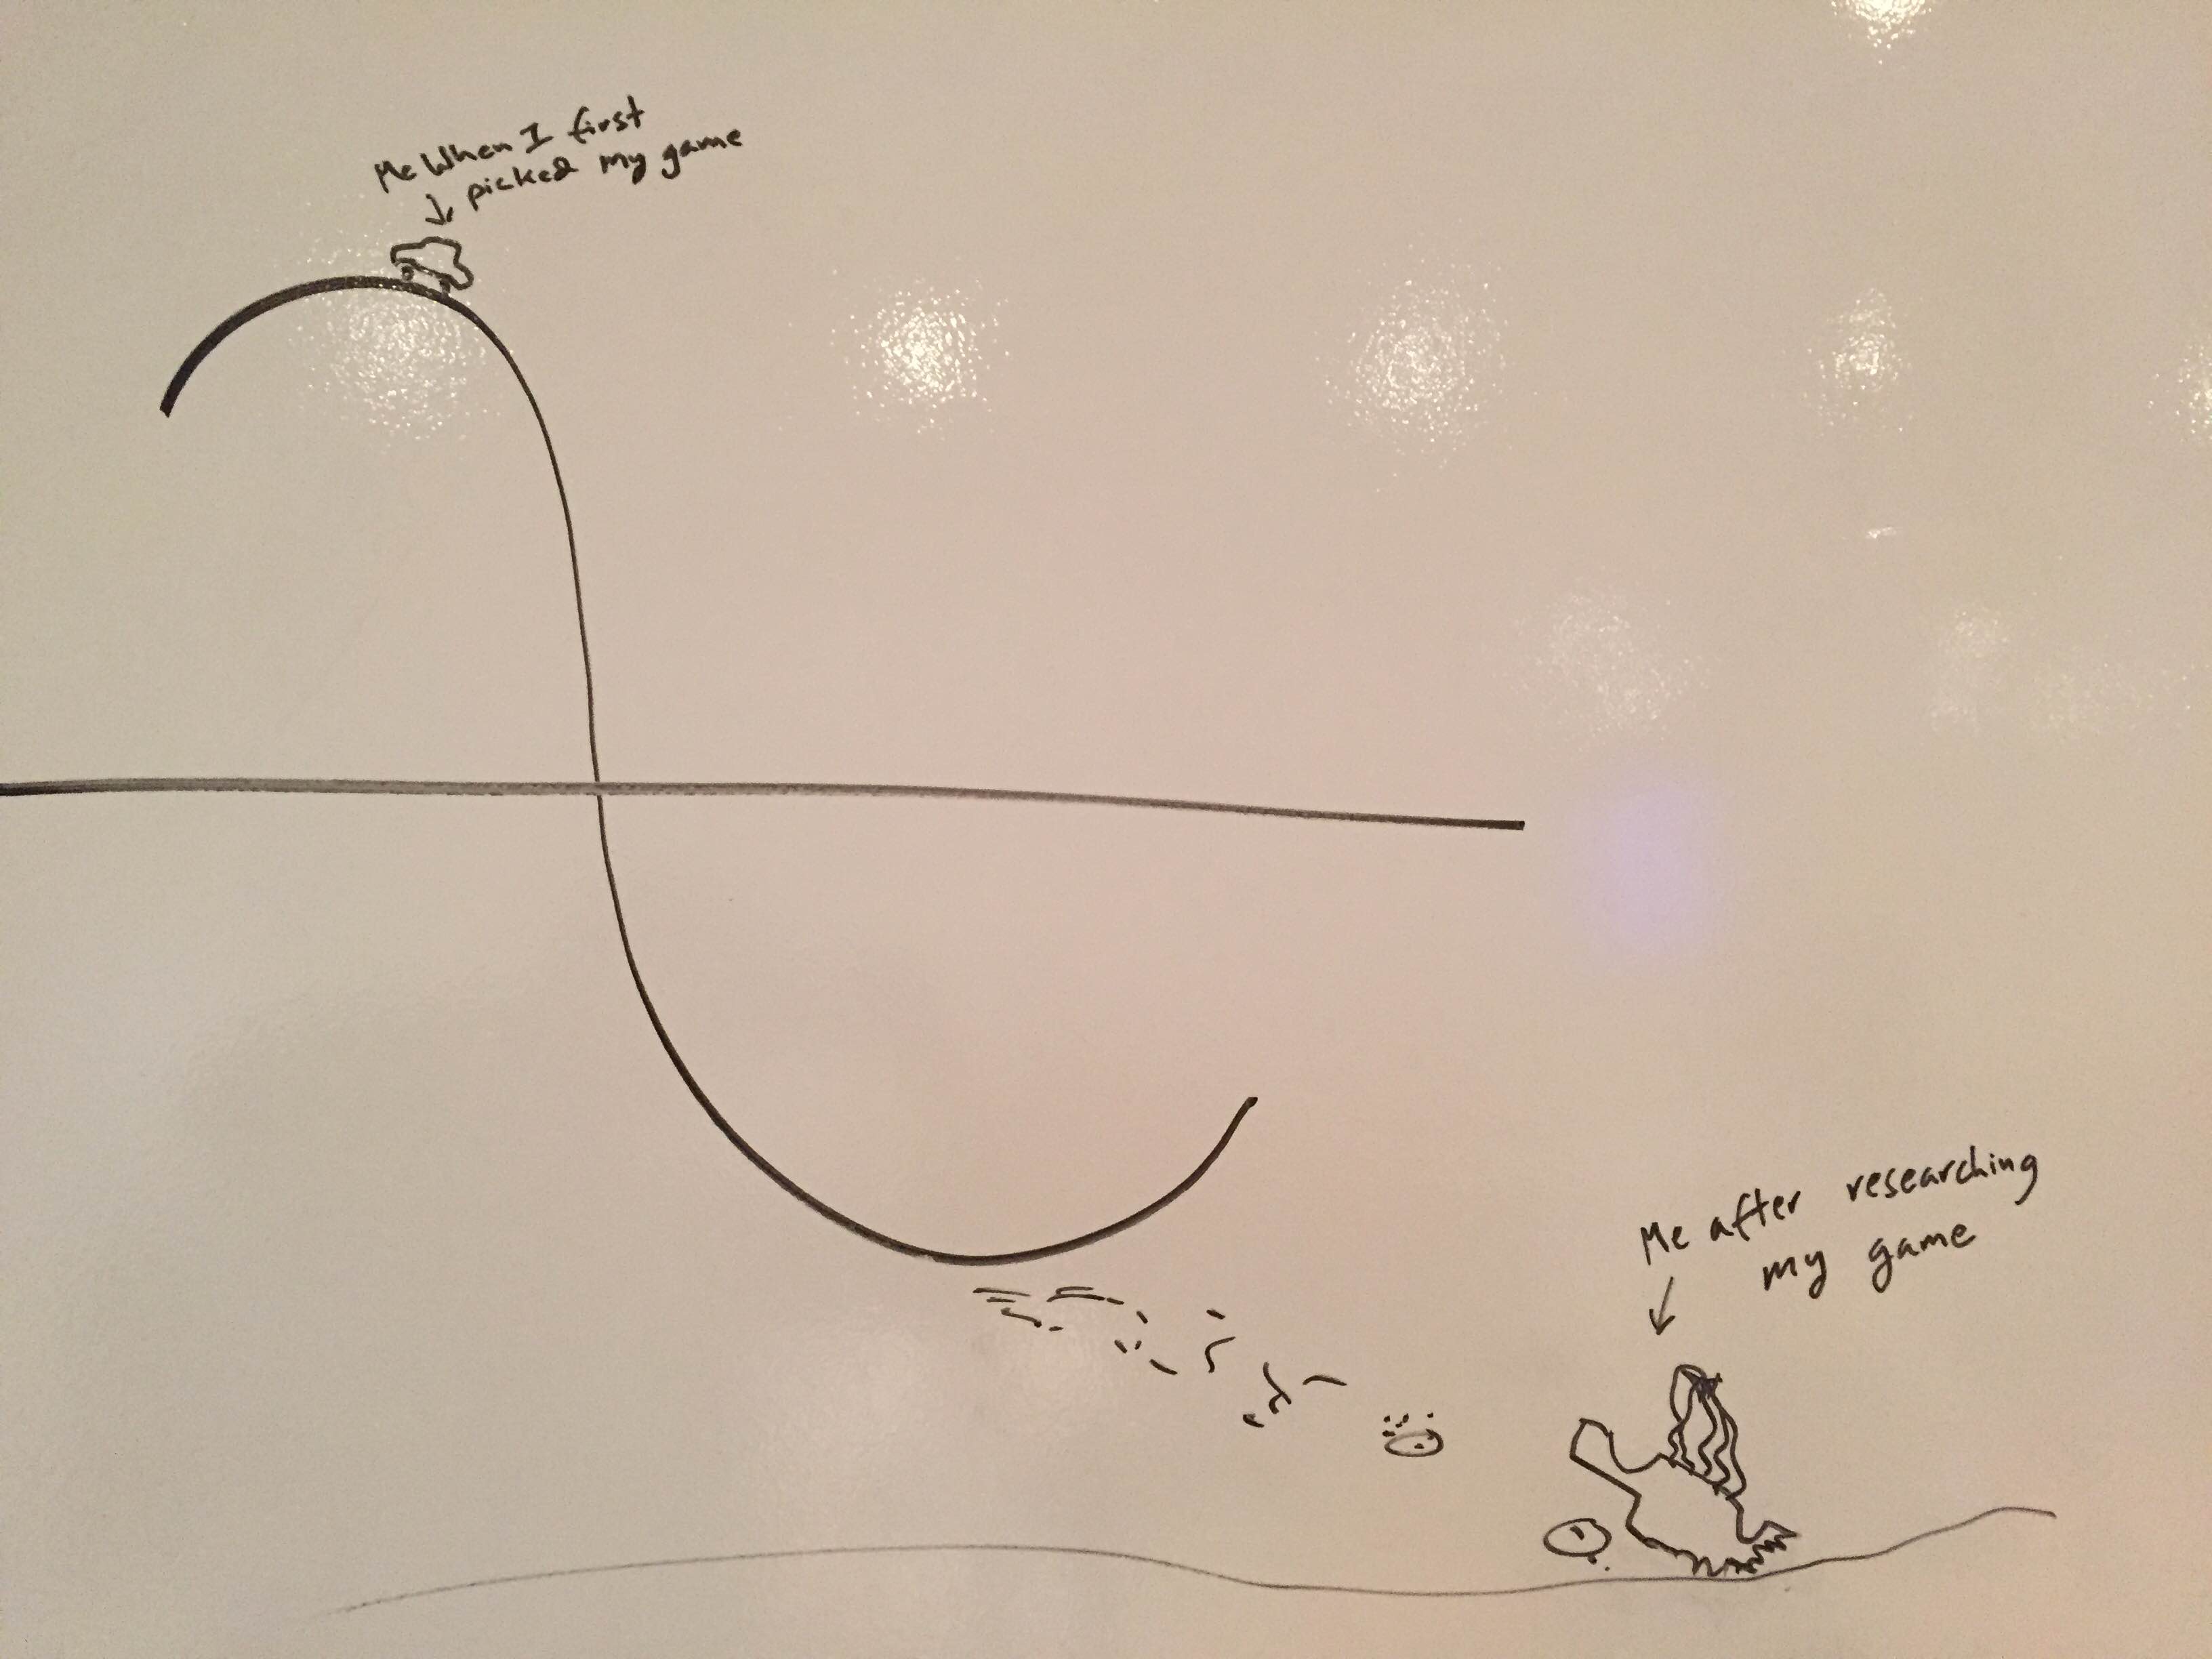 Me When I first
picked my game
Me after researching
my game